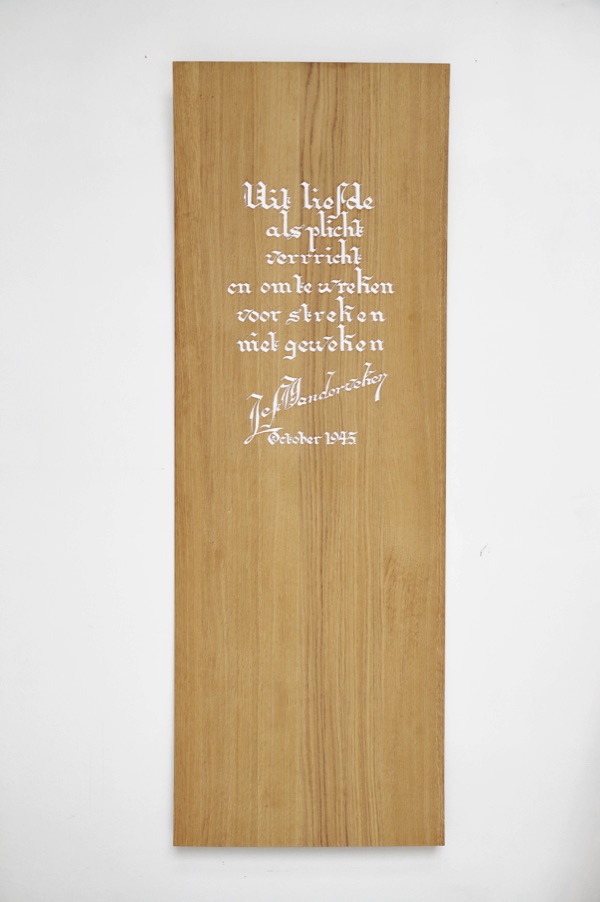 Uit liefde
als plicht
verrricht
en om te wreken
voor streken
niet geweken
Jef Vanderveken
October 1945